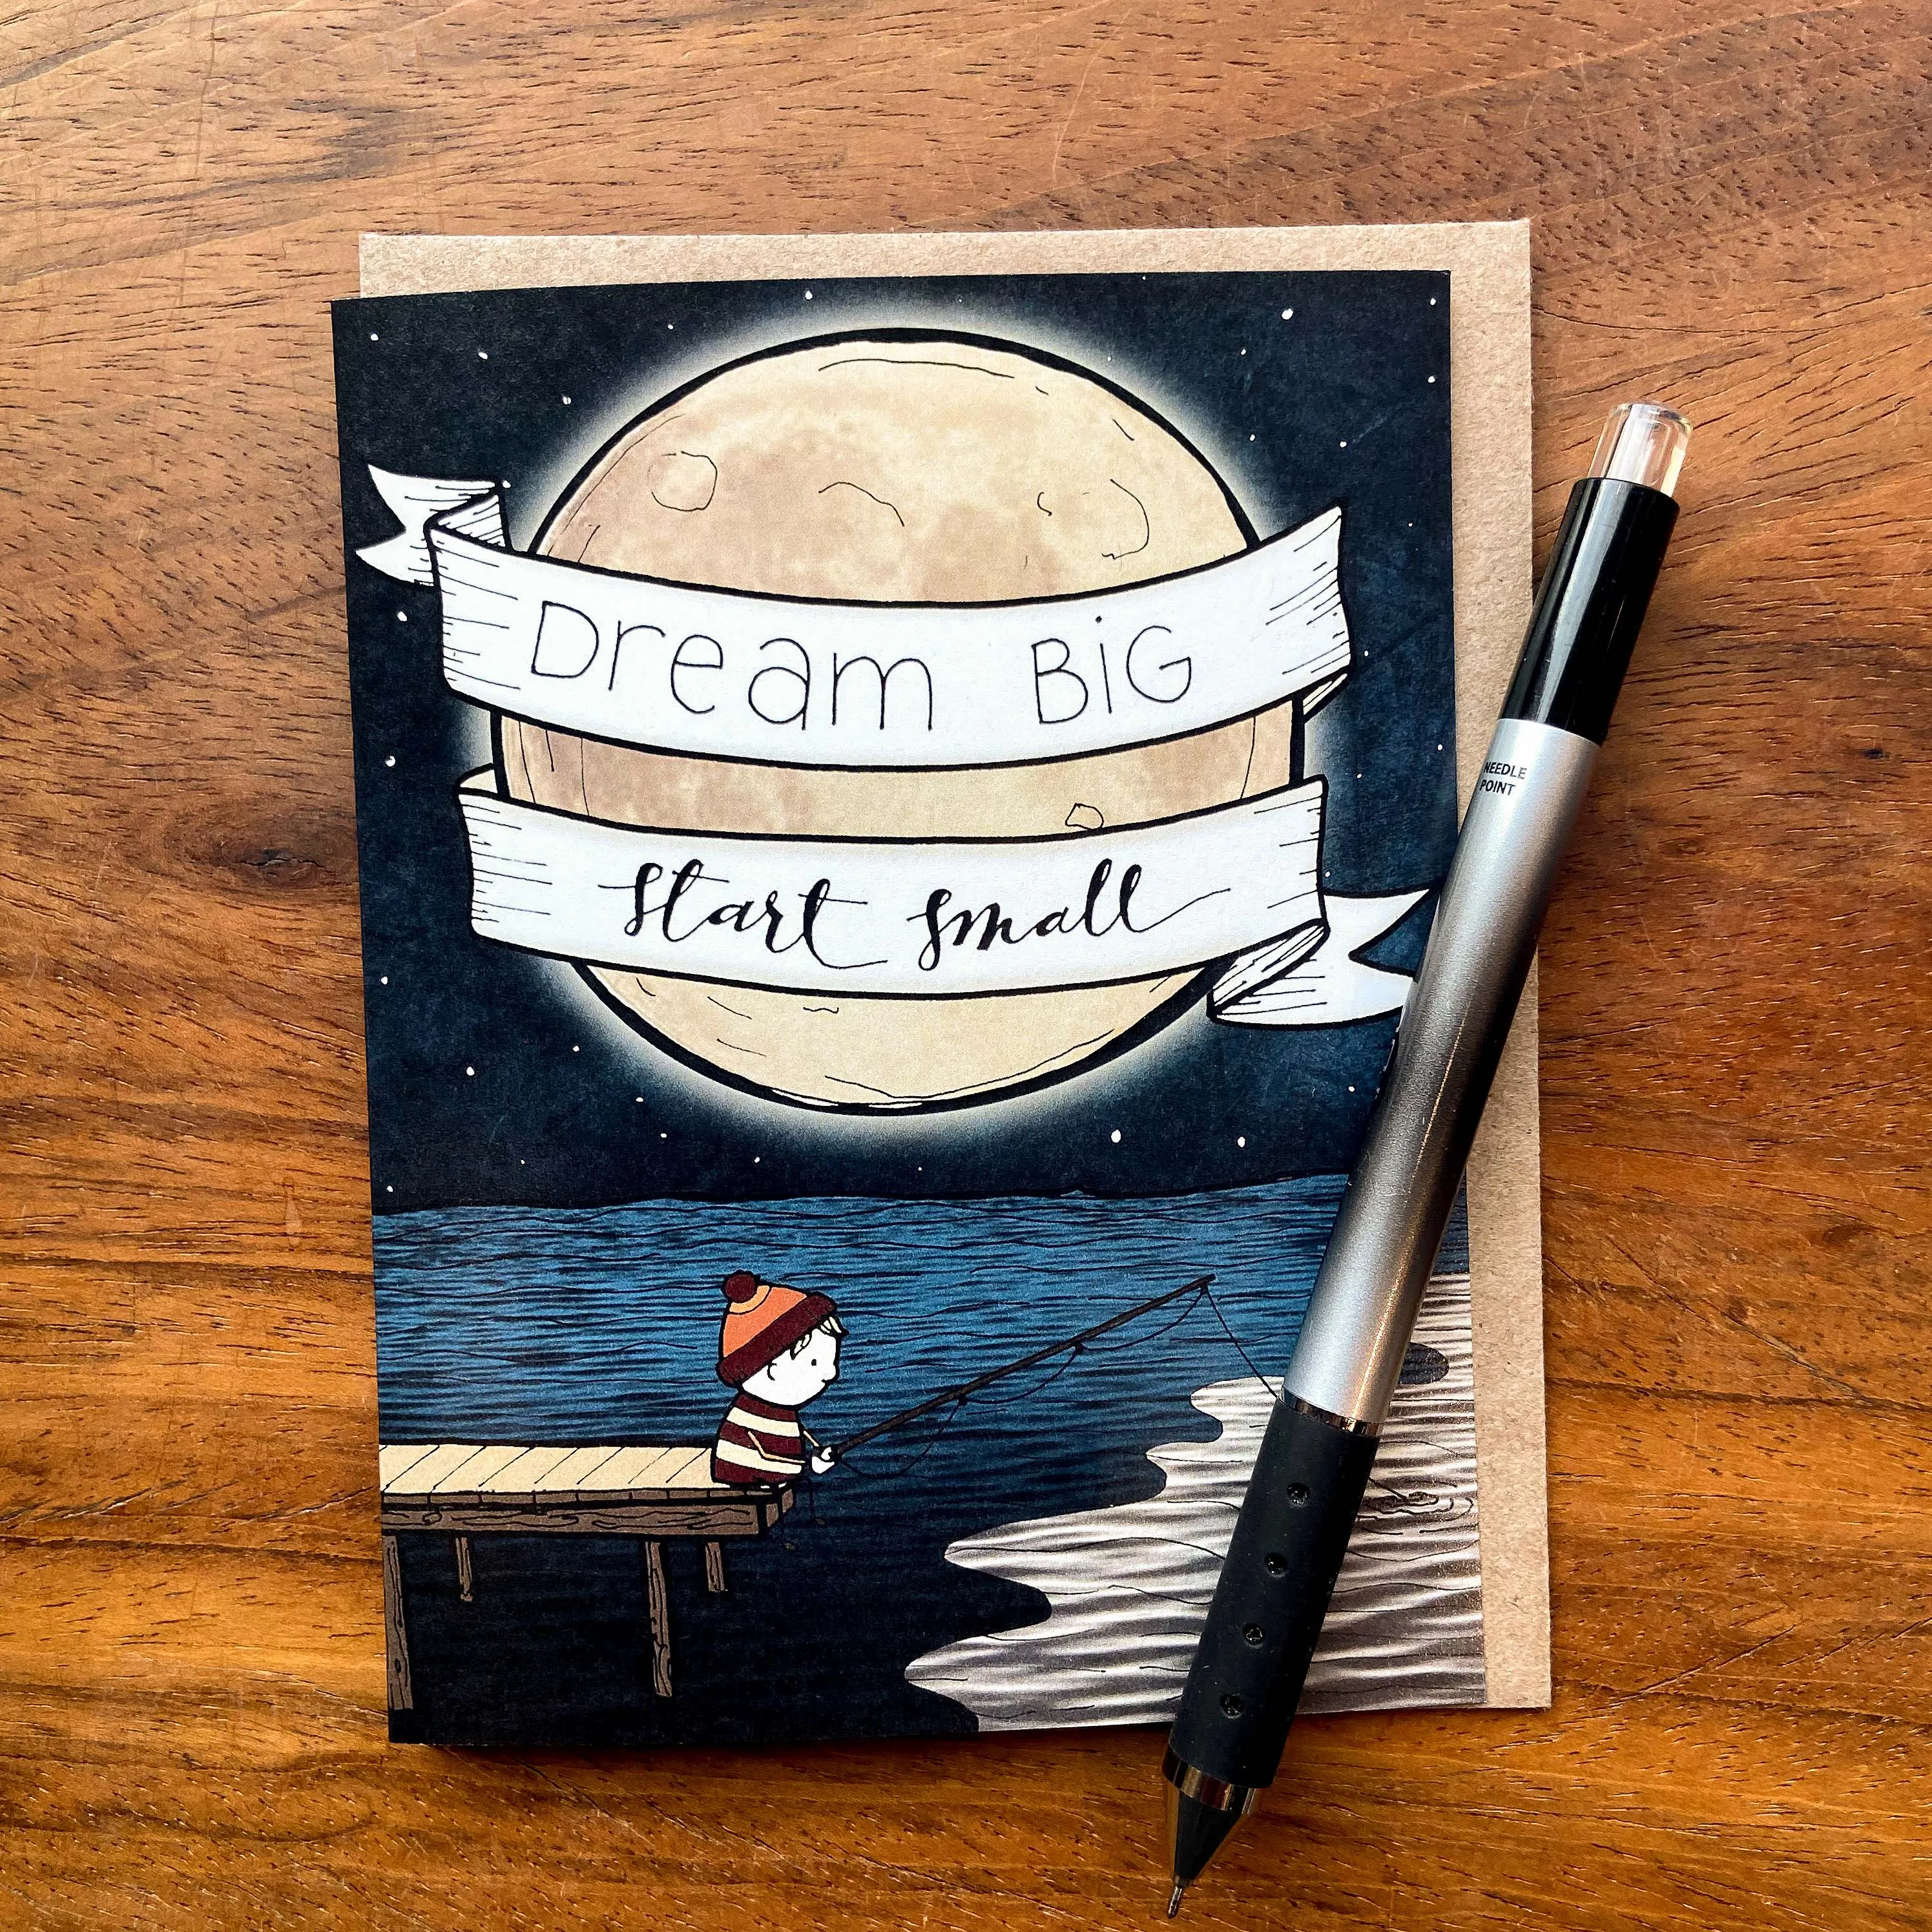 Dream BiG
Start small
NEEDLE
POINT